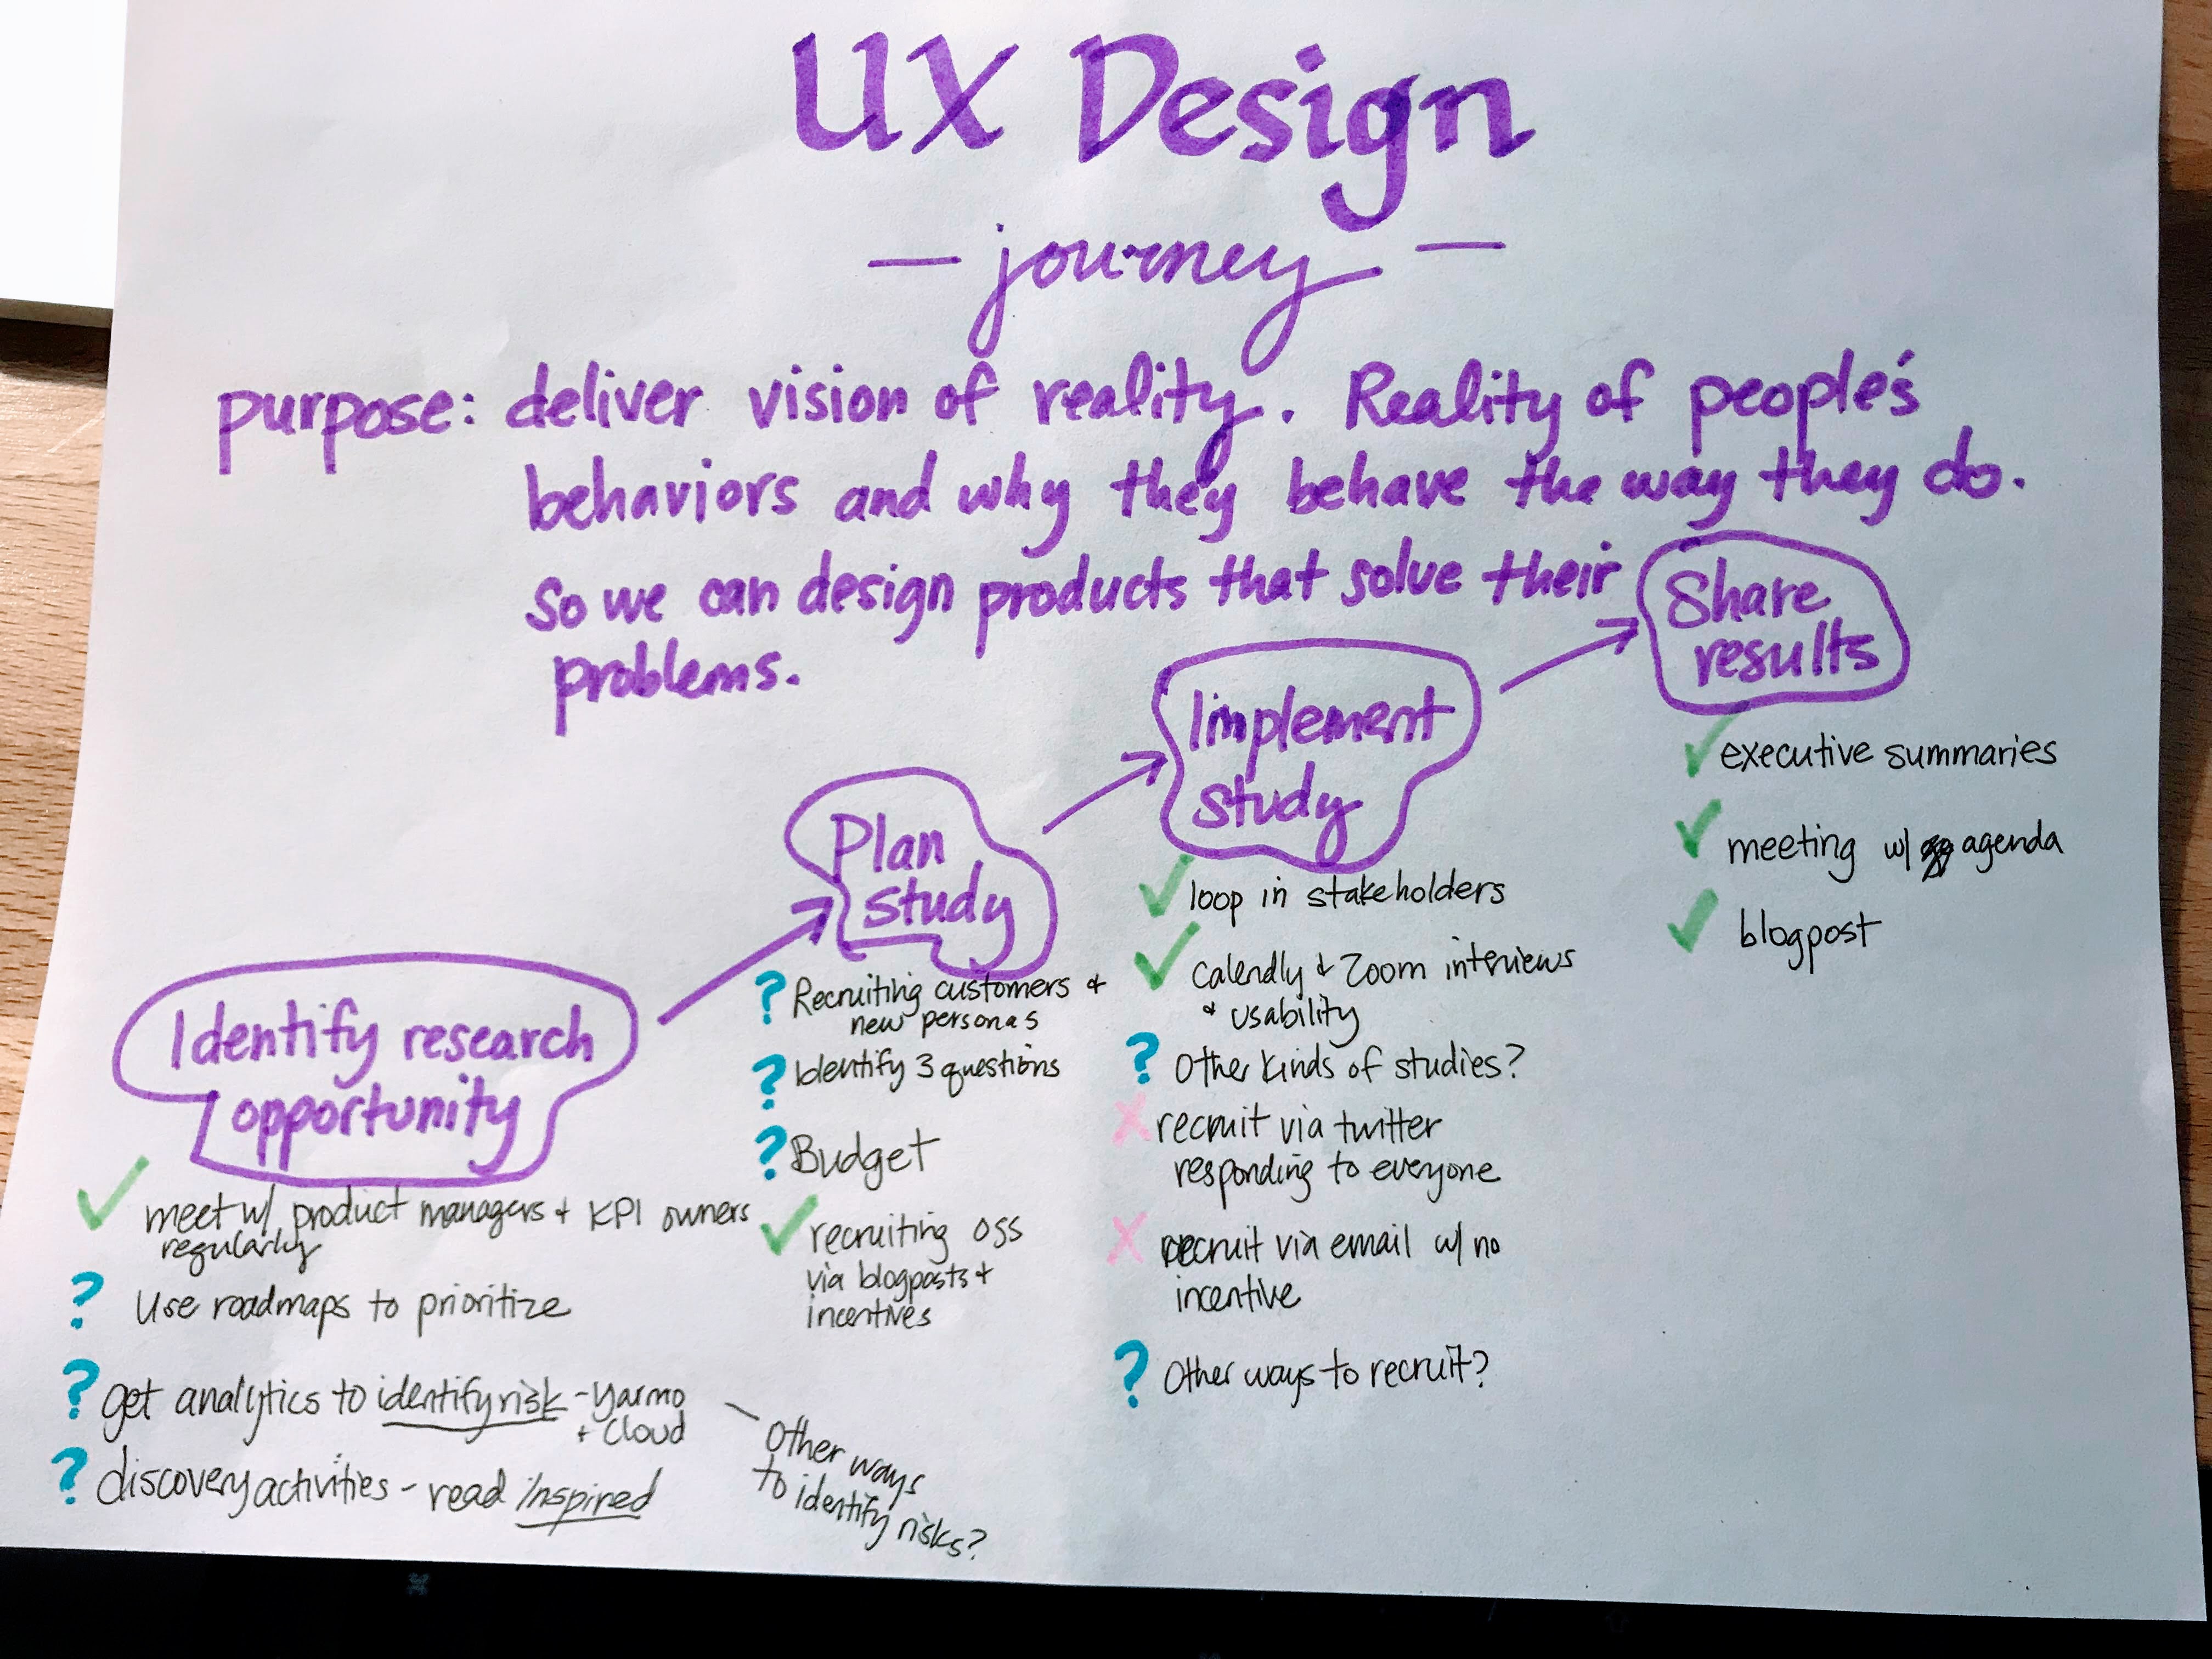 UX Design
— journey —
purpose: deliver vision of reality. Reality of people's
behaviors and why they behave the way they do.
So we can design products that solve their
problems.
Identify research
opportunity
✓ meet w/ product managers + KPI owners
regularly
? Use roadmaps to prioritize
? get analytics to identify risk - Yarmo
+ Cloud
? discovery activities - read Inspired
Other ways
to identify risks?
Plan
study
? Recruiting customers +
new personas
? Identify 3 questions
? Budget
✓ recruiting OSS
via blogposts +
incentives
Implement
study
✓ loop in stakeholders
✓ Calendly + Zoom interviews
+ usability
? Other kinds of studies?
X recruit via twitter
responding to everyone
X recruit via email w/ no
incentive
? Other ways to recruit?
Share
results
✓ executive summaries
✓ meeting w/ agenda
✓ blogpost